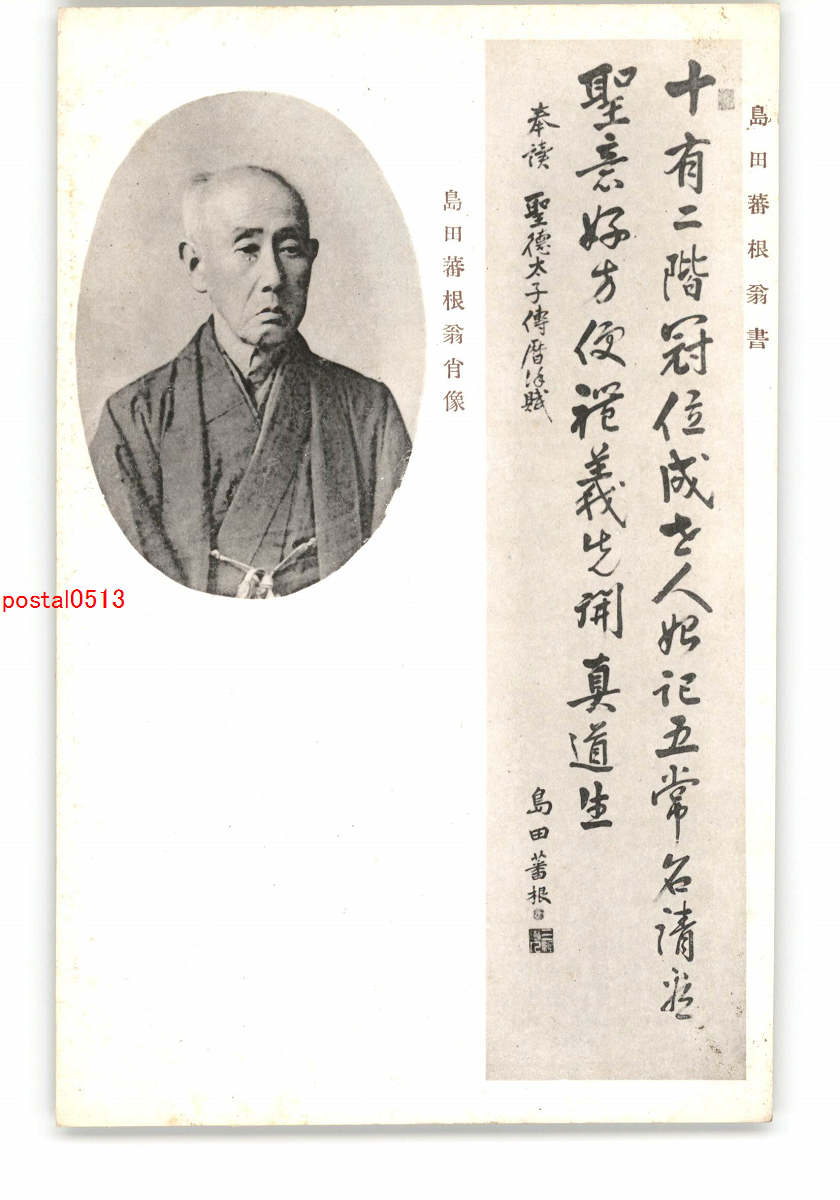 島田蕃根翁書
十有二階冠位成世人始記五常名請看
聖意好方便禮義先開真道生
奉讀 聖德太子傳曆後賦
島田蕃根
島田蕃根翁肖像
postal0513